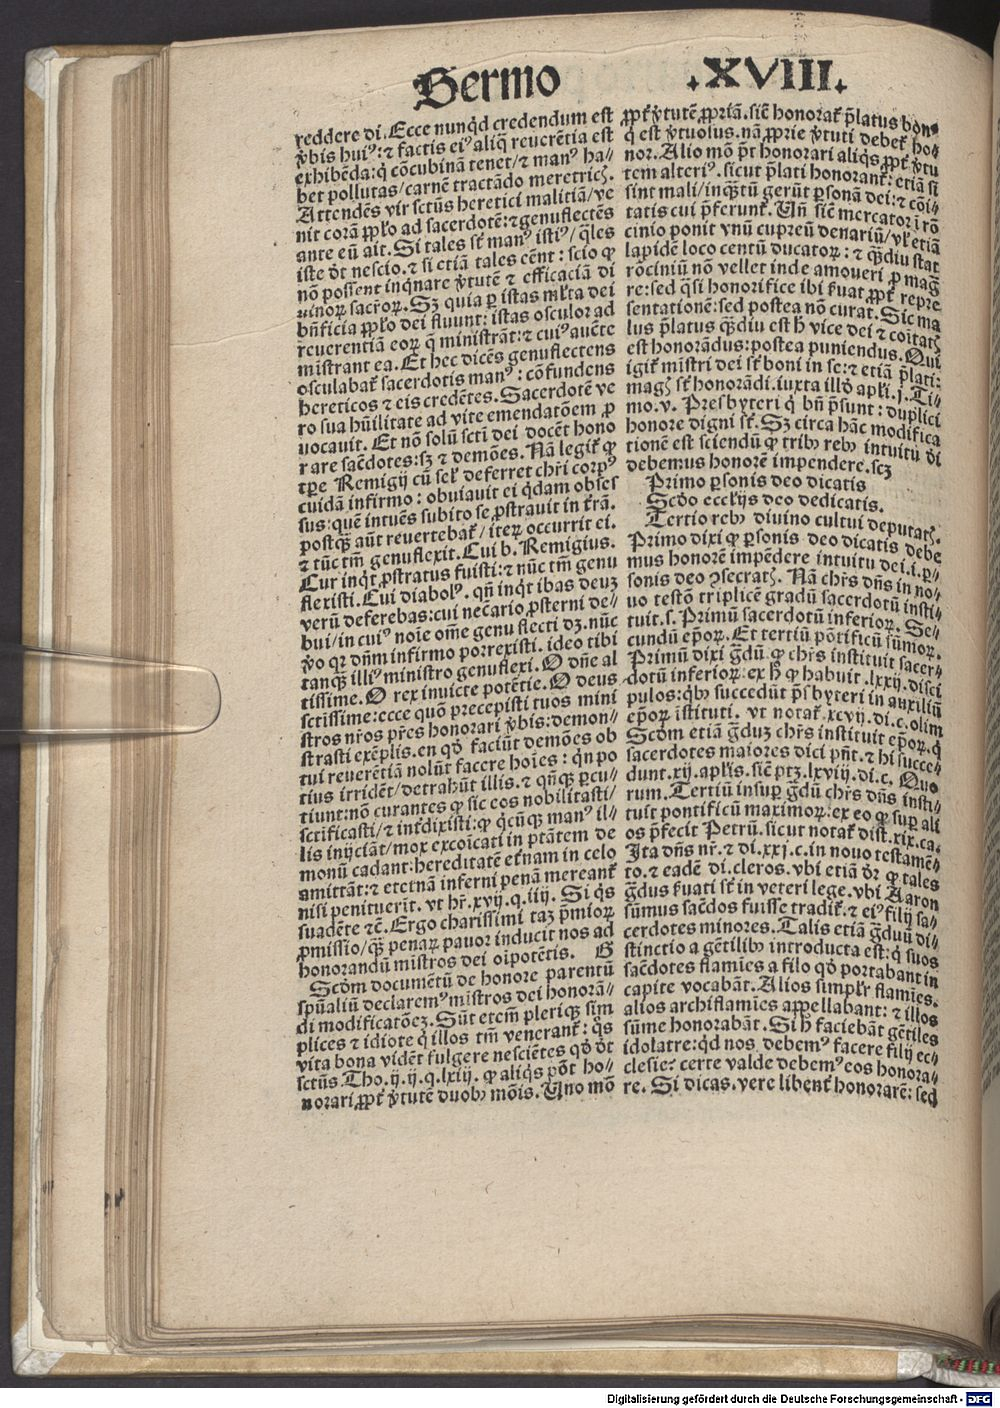 Sermo .XVIII.
reddere di. Ecce nunqd credendum est
ꝟbis huiꝰ: ⁊ factis eiꝰ aliq̃ reuerẽtia est
exhibẽda: q̇ cõcubinã tenet/⁊ manꝰ ha⸗
bet pollutas/carnẽ tractãdo meretricꝭ.
Attendẽs vir sctũs heretici malitiã/ve
nit corã ppl̃o ad sacerdotẽ: ⁊ genuflectẽs
ante eũ ait. Si tales st̃ manꝰ istiꝰ/q̃les
iste dt̃ nescio. ⁊ si etiã tales eẽnt: scio ꝙ
nõ possent inq̇nare ꝟtutẽ ⁊ efficaciã di
uinoꝝ sacr̃oꝝ. Sꝫ quia ꝑ istas ml̃ta dei
bñficia ppl̃o dei fluunt: istas osculor ad
reuerentiã eoꝝ q̇ ministrãt: ⁊ cuiꝰ aucte
mĩstrant ea. Et hec dicẽs genuflectens
osculabat̃ sacerdotis manꝰ: cõfundens
hereticos ⁊ eis credẽtes. Sacerdotẽ ve
ro sua hũilitate ad vite emendatõem ꝓ
uocauit. Et nõ solũ scti dei docẽt hono
rare sacẽdotes: sꝫ ⁊ demões. Nã legit̃ ꝙ
tp̃e Remigij cũ sel̃ deferret chr̃i corpꝰ
cuidã infirmo: obuiauit ei q̇dam obses
sus: quẽ intuẽs subito se ꝓstrauit in t̃rã.
postq̃ꝫ aũt reuertebat̃/iteꝝ occurrit ei.
⁊ tũc tm̃ genuflexit. Cui b. Remigius.
Cur inq̇t ꝓstratus fuisti: ⁊ nũc tm̃ genu
flexisti. Cui diabolꝰ. qñ inq̇t ibas deuꝫ
verũ deferebas: cui necãrio ꝓsterni de⸗
bui/in cuiꝰ noĩe om̃e genu flecti dꝫ. nũc
ꝟo qꝛ dñm infirmo porrexisti. ideo tibi
tanq̃ꝫ illiꝰ ministro genuflexi. O dñe al
tissime. O rex inuicte potẽtie. O deus
sctissime: ecce quõ precepisti tuos mini
stros nr̃os pr̃es honorari ꝟbis: demon⸗
strasti exẽplis. en qd̃ faciũt demões ob
tui reuerẽtiã nolũt facere hoĩes: q̇n po
tius irridẽt/detrahũt illis. ⁊ qñq̃ꝫ ꝑcu⸗
tiunt: nõ curantes ꝙ sic eos nobilitasti/
sctificasti/⁊ int̃dixisti: ꝙ q̇cũqꝫ manꝰ il⸗
lis inijciãt/mox excõicati in ptãtem de
monũ cadant: hereditatẽ et̃nam in celo
amittãt: ⁊ eternã inferni penã mereant̃
nisi penituerit. vt hr̃. xvij. q. iiij. Si q̇s
suadẽte ⁊c̃. Ergo charissimi taꝫ p̃mioꝝ
ꝓmissio/q̃ꝫ penaꝝ pauor inducit nos ad
honorandũ mĩstros dei oĩpotẽtis. G
Scd̃m documẽtũ de honore parentũ
spũaliũ declaremꝰ mĩstros dei honorã⸗
di modificatõeꝫ. Sũt etem̃ pleriqꝫ sim
plices ⁊ idiote q̇ illos tm̃ venerant̃: q̇s
vita bona vidẽt fulgere nesciẽtes qd̃ dt̃
sctũs Tho. ij. ij. q. lxiij. ꝙ aliq̇s põt ho⸗
norari ꝓpt̃ ꝟtutẽ duobꝫ mõis. Uno mõ
ꝓpt̃ ꝟtutẽ ꝓpriã. sic̃ honorat̃ p̃latus bonꝰ
q̇ est ꝟtuosus. nã ꝓprie ꝟtuti debet̃ ho⸗
nor. Alio mõ p̃t honorari aliq̇s ꝓpt̃ ꝟtu
tem alteriꝰ. sicut p̃lati honorant̃: etiã si
sint mali/inq̃ꝫtũ gerũt ꝑsonã dei: ⁊ cõi⸗
tatis cui p̃ferunt̃. Uñ sic̃ mercator ĩ rõ
cinio ponit vnũ cupreũ denariũ/vl̃ etiã
lapidẽ loco centũ ducatoꝝ: ⁊ q̃ꝫdiu stat
rõciniũ nõ vellet inde amoueri ꝓ mag̃
re: sed q̃si honorifice ibi s̃uat ꝓpt̃ repre
sentationẽ: sed postea nõ curat. Sic ma
lus p̃latus q̃ꝫdiu est h̃ vice dei ⁊ cõitatꝭ
est honorãdus: postea puniendus. Qui
igit̃ mĩstri dei st̃ boni in se: ⁊ etiã p̃lati:
magꝭ st̃ honorãdi. iuxta illd̃ apl̃i. j. Ti⸗
mo. v. Presbyteri q̇ bñ p̃sunt: duplici
honore digni st̃. Sꝫ circa hãc modifica
tionẽ est sciendũ ꝙ tribꝫ rebꝫ intuitu di
debemus honorẽ impendere. scꝫ
Primo ꝑsonis deo dicatis
Scd̃o eccl̃ijs deo dedicatis.
Tertio rebꝫ diuino cultui deputatꝭ.
Primo dixi ꝙ ꝑsonis deo dicatis debe
mus honorẽ impẽdere intuitu dei. i. ꝑ⸗
sonis deo ꝯsecratꝭ. Nã chr̃s dñs in no⸗
uo testõ triplicẽ gradũ sacerdotũ insti⸗
tuit. s. Primũ sacerdotũ inferioꝝ. Se⸗
cundũ ep̃oꝝ. Et tertiũ põtificũ sũmoꝝ.
Primũ dixi g̃dũ ꝙ chr̃s instituit sacer⸗
dotũ inferioꝝ: ex h̃ ꝙ habuit. lxxij. disci
pulos: q̇bꝫ succedũt p̃sbyteri in auxiliũ
ep̃oꝝ ĩstituti. vt notat̃. xcvij. di. c. olim
Scd̃m etiã g̃duꝫ chr̃s instituit ep̃oꝝ. q̇
sacerdotes maiores dici pñt. ⁊ hi succe⸗
dunt. xij. apl̃is. sic̃ ptꝫ. lxviij. di. c. Quo
rum. Tertiũ insuꝑ g̃dũ chr̃s dñs insti⸗
tuit pontificũ maximoꝝ: ex eo ꝙ suꝑ ali
os p̃fecit Petrũ. sicut notat̃ dist. xix. ca.
Ita dñs nr̃. ⁊ di. xxj. c. in nouo testamẽ⸗
to. ⁊ eadẽ di. cleros. vbi etiã dr̃ ꝙ tales
g̃dus s̃uati st̃ in veteri lege. vbi Aaron
sũmus sacẽdos fuisse tradit̃. ⁊ eiꝰ filij sa⸗
cerdotes minores. Talis etiã g̃duũ di⸗
stinctio a gẽtilibꝫ introducta est: q̇ suos
sacẽdotes flamĩes a filo qd̃ portabant in
capite vocabãt. Alios simpl̃r flamĩes.
alios archiflamĩes appellabant: ⁊ illos
sũme honorabãt. Si h̃ faciebãt gẽtiles
idolatre: qd nos debemꝰ facere filij ec⸗
clesie: certe valde debemꝰ eos honora⸗
re. Si dicas. vere libent̃ honorarẽ: sed
Digitalisierung gefördert durch die Deutsche Forschungsgemeinschaft - DFG